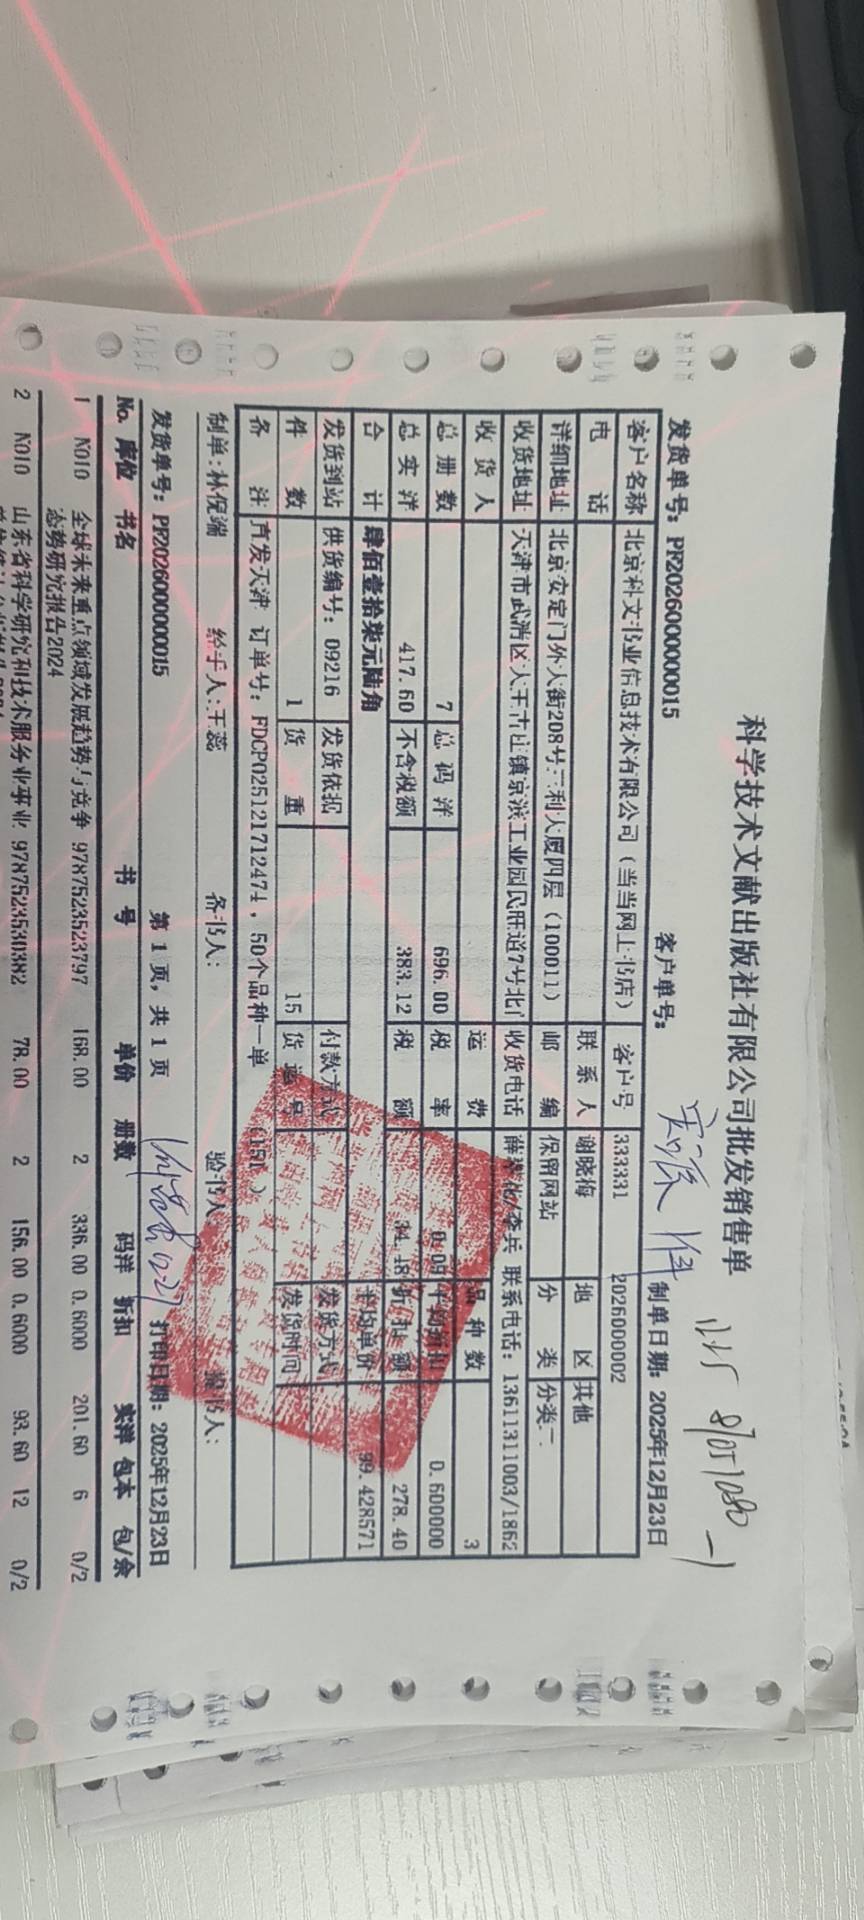 科学技术文献出版社有限公司批发销售单
发货单号: PF2026000000015 客户单号: 制单日期: 2025年12月23日
客户名称 北京科文书业信息技术有限公司(当当网上书店) 客户号 333331 2026000002
电 话 联系人 谢晓梅 地 区 其他
详细地址 北京安定门外大街208号三利大厦四层(100011) 邮 编 保留网站 分 类 分类二
收货地址 天津市武清区大王古庄镇京滨工业园民旺道7号北门 收货电话 李兵 联系电话: 13611311003/1862
收 货 人 运 费 品种数 3
总 册 数 7 总 码 洋 696.00 税 率 0.09 平均折扣 0.600000
总 实 洋 417.60 不含税额 383.12 税 额 34.48 折扣额 278.40
合 计 肆佰壹拾柒元陆角 平均单价 99.428571
发货到站 供货编号: 09216 发货依据 付款方式 发货方式
件 数 1 货 重 15 货运号 发货时间
备 注 直发天津 订单号: FDCP025121712474, 50个品种一单
制单:林倪端 经手人:王蕊 备书人: 验书人: 人:
发货单号: PF2026000000015 第 1 页, 共 1 页 打印日期: 2025年12月23日
No. 库位 书名 书 号 单价 册数 码洋 折扣 实洋 包本 包/余
1 N010 全球未来重点领域发展趋势与竞争 9787523523797 168.00 2 336.00 0.6000 201.60 6 0/2
态势研究报告2024
2 N010 山东省科学研究和技术服务业事业 9787523530382 78.00 2 156.00 0.6000 93.60 12 0/2